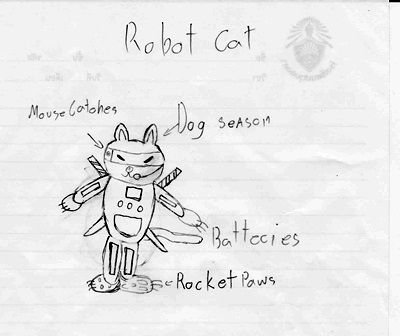 Robot Cat
Mouse Catches
Dog season
Battecies
Rocket Paws